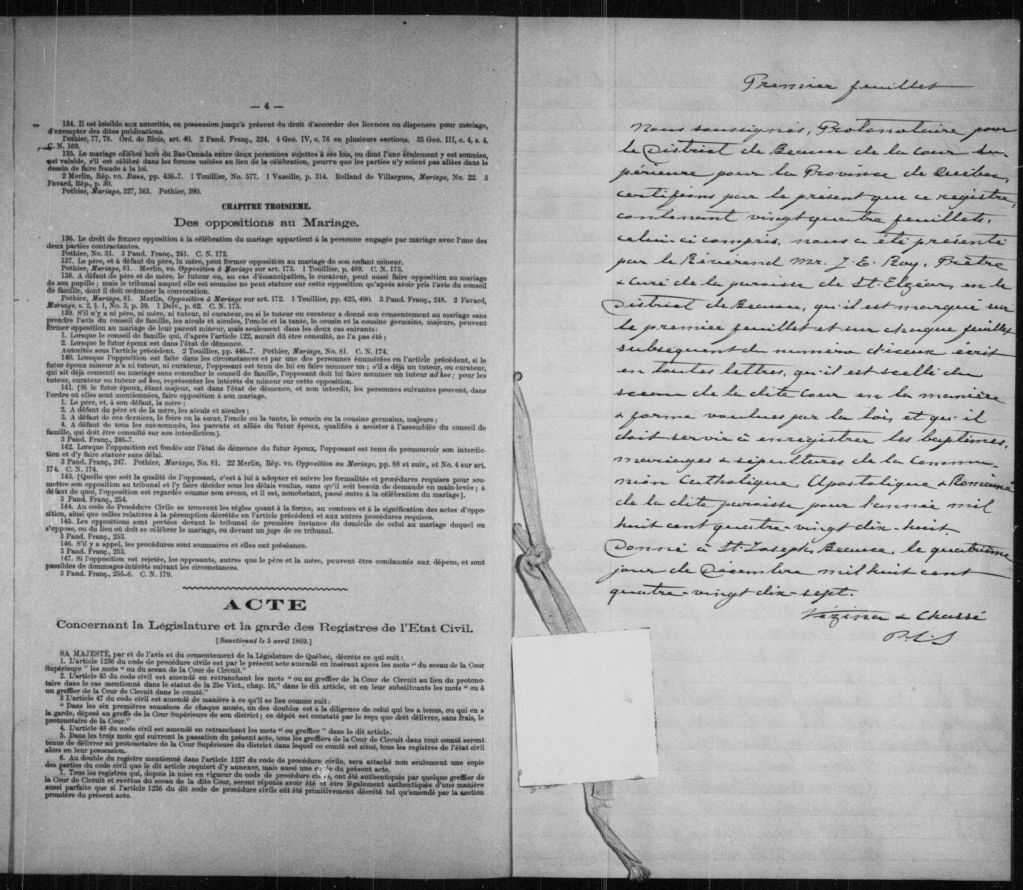 — 4 —
134. Il est loisible aux autorités, en possession jusqu'à présent du droit d'accorder des licences ou dispenses pour mariage,
d'exempter des dites publications.
Pothier, 77, 78. Ord. de Blois, art. 40. 2 Pand. Franç., 224. 4 Geo. IV, c. 76 en plusieurs sections. 35 Geo. III, c. 4, s. 4.
C. N. 169.
135. Le mariage célébré hors du Bas-Canada entre deux personnes sujettes à ses lois, ou dont l'une seulement y est soumise,
est valable, s'il est célébré dans les formes usitées au lieu de la célébration, pourvu que les parties n'y soient pas allées dans le
dessin de faire fraude à la loi.
2 Merlin, Rép. vo. Bans, pp. 436-7. 1 Touillier, No. 577. 1 Vazeille, p. 314. Rolland de Villargues, Mariage, No. 22. 3
Favard, Rép., p. 30.
Pothier, Mariage, 327, 363. Pothier, 390.
CHAPITRE TROISIEME.
Des oppositions au Mariage.
136. Le droit de former opposition à la célébration du mariage appartient à la personne engagée par mariage avec l'une des
deux parties contractantes.
Pothier, No. 31. 3 Pand. Franç., 241. C. N. 172.
137. Le père, et à défaut du père, la mère, peut former opposition au mariage de son enfant mineur.
Pothier, Mariage, 81. Merlin, vo. Opposition à Mariage sur art. 173. 1 Touillier, p. 489. C. N. 173.
138. A défaut de père et de mère, le tuteur ou, au cas d'émancipation, le curateur, peut aussi faire opposition au mariage
de son pupille; mais le tribunal auquel elle est soumise ne peut statuer sur cette opposition qu'après avoir pris l'avis du conseil
de famille, dont il doit ordonner la convocation.
Pothier, Mariage, 81. Merlin, Opposition à Mariage sur art. 172. 1 Touillier, pp. 425, 490. 3 Pand. Franç., 248. 2 Favard,
Mariage, s. 2, § 1, No. 3, p. 59. 1 Delv., p. 62. C. N. 175.
139. S'il n'y a ni père, ni mère, ni tuteur, ni curateur, ou si le tuteur ou curateur a donné son consentement au mariage sans
prendre l'avis du conseil de famille, les aïeuls et aïeules, l'oncle et la tante, le cousin et la cousine germains, majeurs, peuvent
former opposition au mariage de leur parent mineur, mais seulement dans les deux cas suivants:
1. Lorsque le conseil de famille qui, d'après l'article 122, aurait dû être consulté, ne l'a pas été;
2. Lorsque le futur époux est dans l'état de démence.
Autorités sous l'article précédent. 2 Touillier, pp. 446-7. Pothier, Mariage, No. 81. C. N. 174.
140. Lorsque l'opposition est faite dans les circonstances et par une des personnes énumérées en l'article précédent, si le
futur époux mineur n'a ni tuteur, ni curateur, l'opposant est tenu de lui en faire nommer un; s'il a déjà un tuteur, ou curateur,
qui ait déjà consenti au mariage sans consulter le conseil de famille, l'opposant doit lui faire nommer un tuteur ad hoc; pour les
tuteur, curateur ou tuteur ad hoc, représenter les intérêts du mineur sur cette opposition.
141. [Si le futur époux, étant majeur, est dans l'état de démence, et non interdit, les personnes suivantes peuvent, dans
l'ordre où elles sont mentionnées, faire opposition à son mariage.
1. Le père, et, à son défaut, la mère;
2. A défaut du père et de la mère, les aïeuls et aïeules;
3. A défaut de ces derniers, le frère ou la sœur, l'oncle ou la tante, le cousin ou la cousine germains, majeurs;
4. A défaut de tous les sus-nommés, les parents et alliés du futur époux, qualifiés à assister à l'assemblée du conseil de
famille, qui doit être consulté sur son interdiction].
3 Pand. Franç., 246-7.
142. Lorsque l'opposition est fondée sur l'état de démence du futur époux, l'opposant est tenu de promouvoir son interdic-
tion et d'y faire statuer sans délai.
3 Pand. Franç., 247. Pothier, Mariage, No. 81. 22 Merlin, Rép. vo. Opposition au Mariage, pp. 88 et suiv., et No. 4 sur art.
174. C. N. 174.
143. [Quelle que soit la qualité de l'opposant, c'est à lui à adopter et suivre les formalités et procédures requises pour sou-
mettre son opposition au tribunal et l'y faire décider sous les délais voulus, sans qu'il soit besoin de demande en main-levée; à
défaut de quoi, l'opposition est regardée comme non avenu, et il est, nonobstant, passé outre à la célébration du mariage].
3 Pand. Franç., 254.
144. Au code de Procédure Civile se trouvent les règles quant à la forme, au contenu et à la signification des actes d'oppo-
sition, ainsi que celles relatives à la péremption décrétée en l'article précédent et aux autres procédures requises.
145. Les oppositions sont portées devant le tribunal de première instance du domicile de celui au mariage duquel on
s'oppose, ou du lieu où doit se célébrer le mariage, ou devant un juge de ce tribunal.
3 Pand. Franç., 253.
146. S'il y a appel, les procédures sont sommaires et elles ont préséance.
3 Pand. Franç., 253.
147. Si l'opposition est rejetée, les opposants, autres que le père et la mère, peuvent être condamnés aux dépens, et sont
passibles de dommages-intérêts suivant les circonstances.
3 Pand. Franç., 255-6. C. N. 179.
ACTE
Concernant la Législature et la garde des Registres de l'Etat Civil.
[Sanctionné le 5 avril 1869.]
SA MAJESTÉ, par et de l'avis et du consentement de la Législature de Québec, décrète ce qui suit:
1. L'article 1236 du code de procédure civile est par le présent acte amendé en insérant après les mots "du sceau de la Cour
Supérieure" les mots "ou du sceau de la Cour de Circuit."
2. L'article 45 du code civil est amendé en retranchant les mots "ou au greffier de la Cour de Circuit au lieu du protono-
taire dans le cas mentionné dans le statut de la 25e Vict., chap. 16," dans le dit article, et en leur substituant les mots "ou à
un greffier de la Cour de Circuit dans le comté."
3 L'article 47 du code civil est amendé de manière à ce qu'il se lise comme suit:
"Dans les six premières semaines de chaque année, un des doubles est à la diligence de celui qui les a tenus, ou qui en a
la garde, déposé au greffe de la Cour Supérieure de son district; ce dépôt est constaté par le reçu que doit délivrer, sans frais, le
protonotaire de la Cour."
4. L'article 48 du code civil est amendé en retranchant les mots "ou greffier" dans le dit article.
5. Dans les trois mois qui suivront la passation du présent acte, tous les greffiers de la Cour de Circuit dans tout comté seront
tenus de délivrer au protonotaire de la Cour Supérieure du district dans lequel ce comté est situé, tous les registres de l'état civil
alors en leur possession.
6. Au double du registre mentionné dans l'article 1237 du code de procédure civile, sera attaché non seulement une copie
des parties du code civil que le dit article requiert d'y annexer, mais aussi une copie du présent acte.
7. Tous les registres qui, depuis la mise en vigueur du code de procédure civile, ont été authentiqués par quelque greffier de
la Cour de Circuit et revêtus du sceau de la dite Cour, seront réputés avoir été et être légalement authentiqués d'une manière
aussi parfaite que si l'article 1236 du dit code de procédure civile eût été primitivement décrété tel qu'amendé par la section
première du présent acte.
Premier feuillet
Nous soussignés, Protonotaire pour
le District de Beauce de la Cour Su-
périeure pour la Province de Québec,
certifions par le présent que ce registre,
contenant vingt quatre feuillets,
celui-ci compris, nous a été présenté
par le Révérend Mr. J. E. Roy, Prêtre
& curé de la paroisse de St. Elzéar, en le
District de Beauce, qu'il est marqué sur
le premier feuillet et sur chaque feuillet
subséquent du numéro d'iceux écrit
en toutes lettres, qu'il est scellé du
sceau de la dite cour en la manière
& forme voulues par la loi, et qu'il
doit servir à enregistrer les baptêmes,
mariages & sépultures de la Commu-
nion Catholique, Apostolique & Romaine
de la dite paroisse pour l'année mil
huit cent quatre-vingt dix-huit.
Donné à St. Joseph, Beauce, le quatrième
jour de Décembre mil huit cent
quatre-vingt dix-sept.
Vézina & Chassé
P.C.S